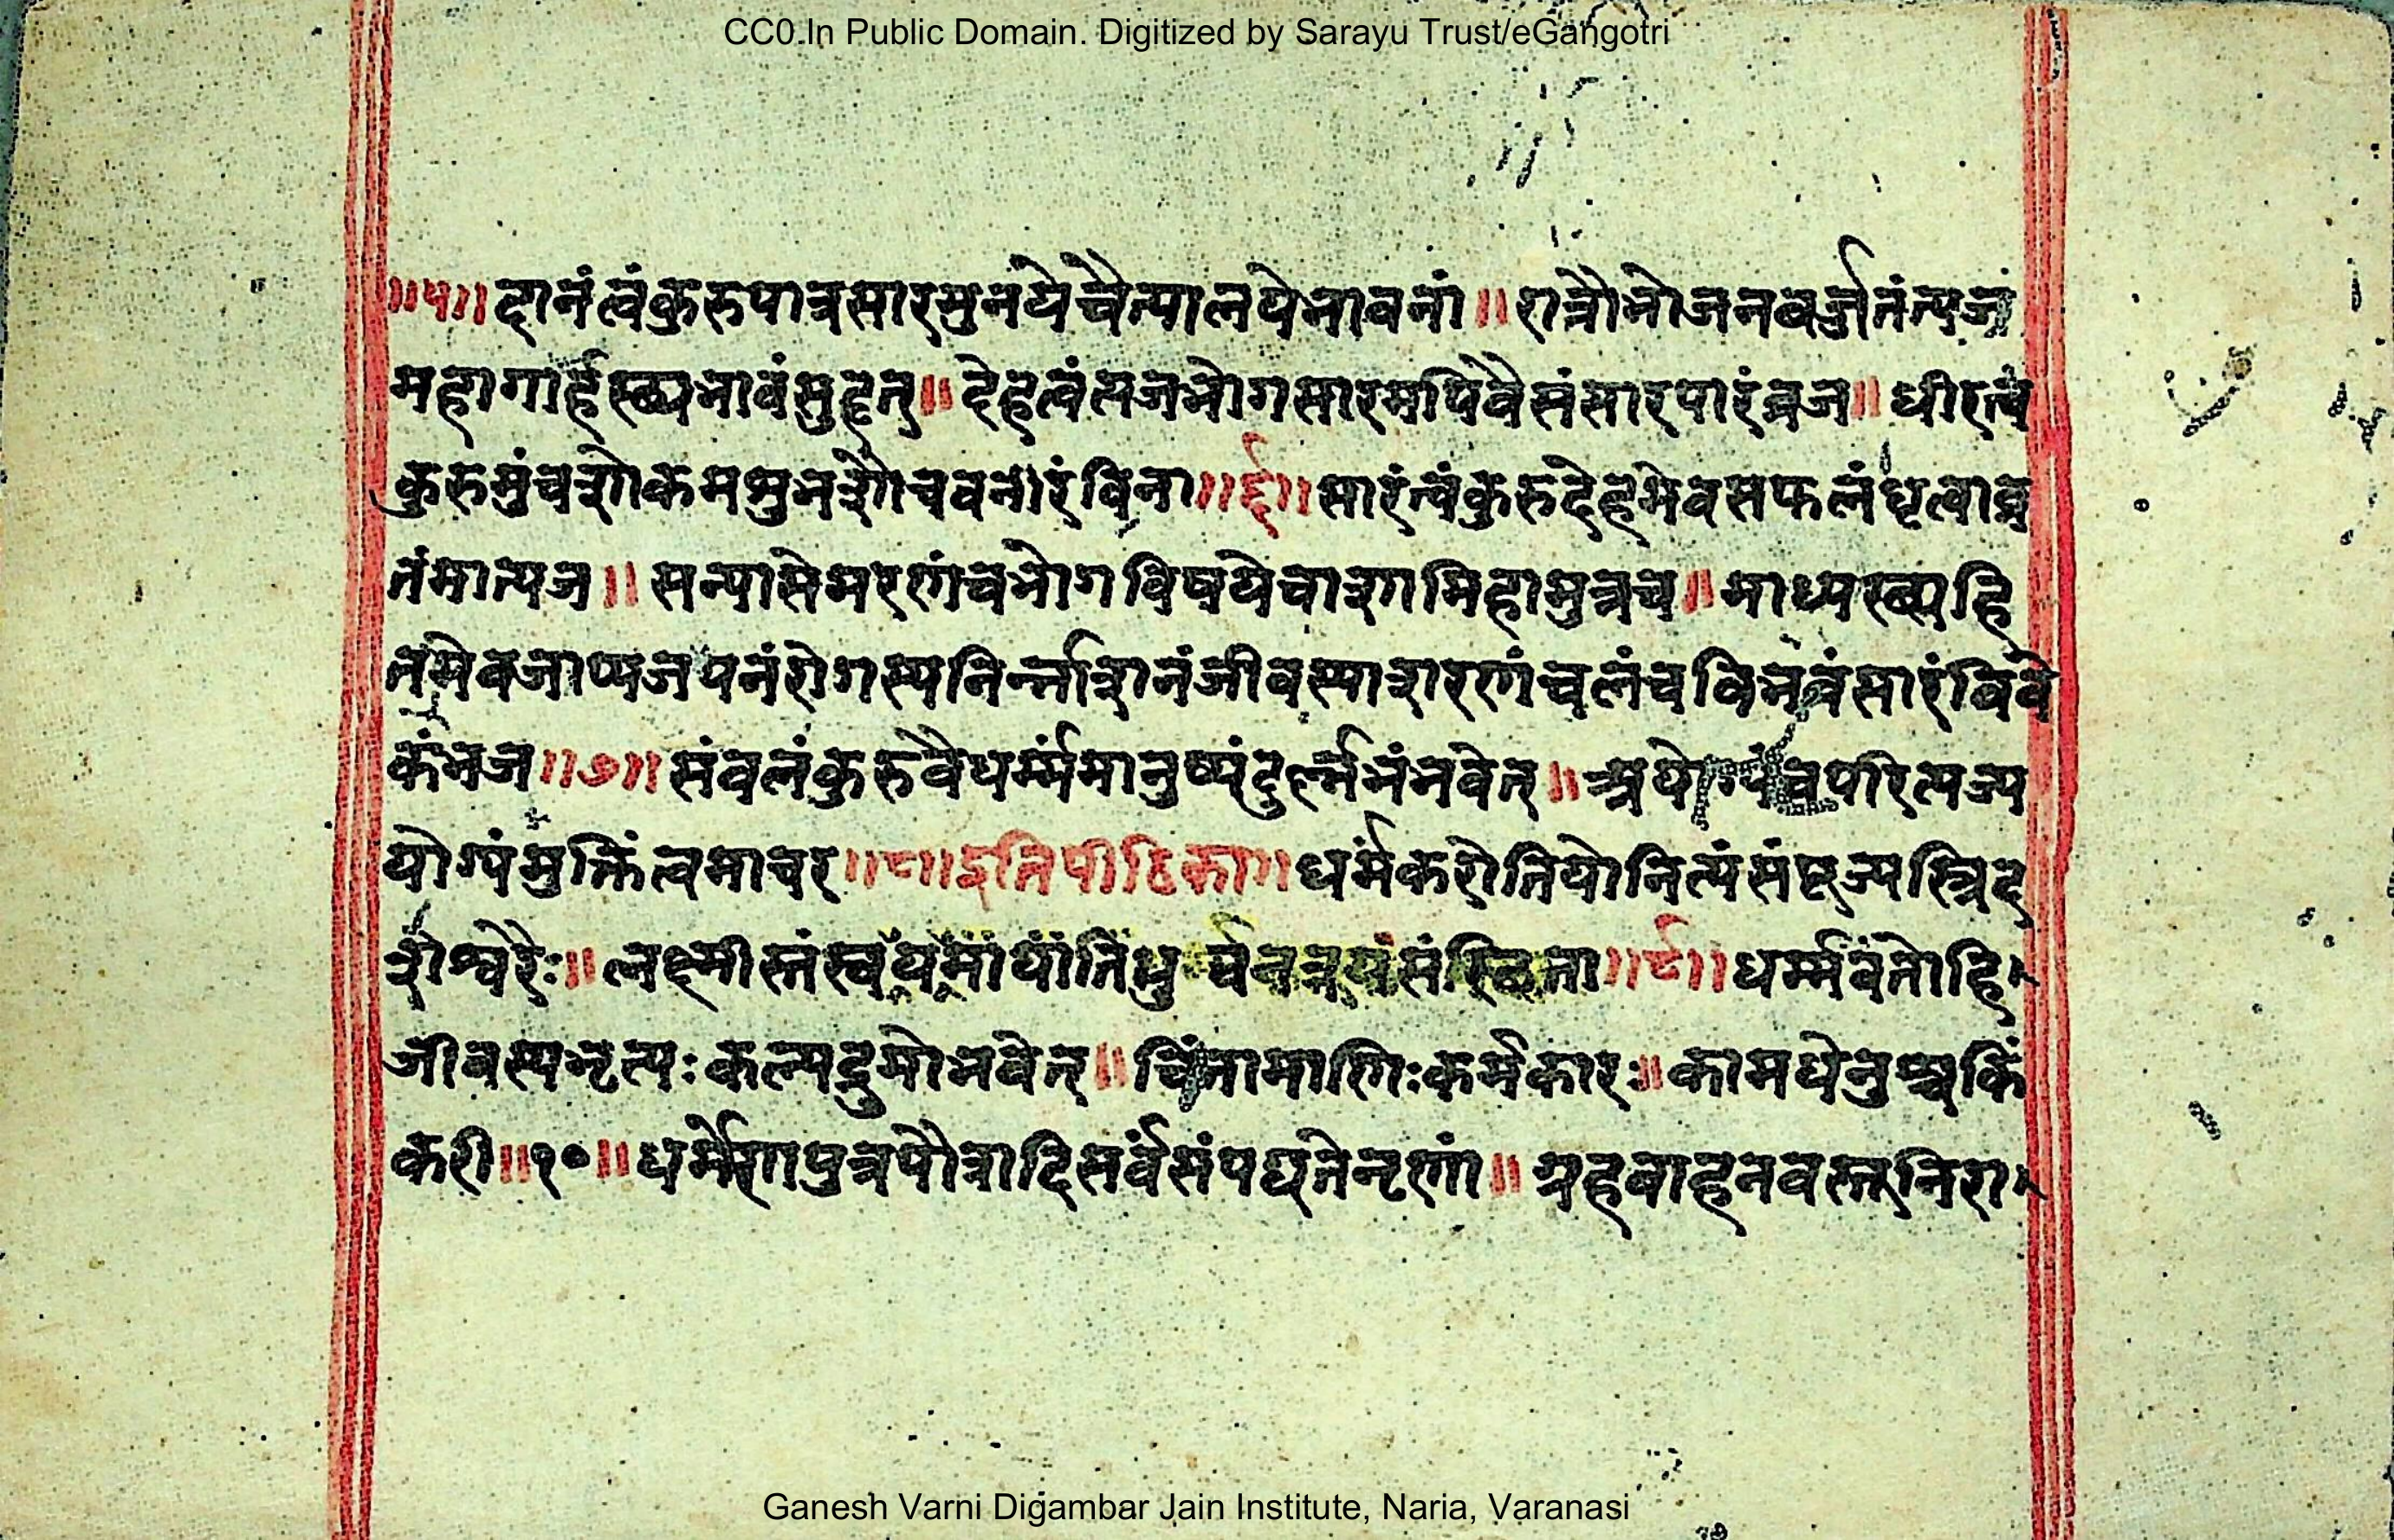 CC0.In Public Domain. Digitized by Sarayu Trust/eGangotri
॥५॥ दानंत्वंकुरुपात्रसारमुनयेचैत्यालयेभावनां॥ रात्रौभोजनवर्ज्जनंत्यज
महागार्हस्थ्यभावंसुहृत्॥ देहत्वंत्यजभोगसारमपिवैसंसारपारंव्रज॥ धीरत्वं
कुरुमुंचशोकमशुभशौचवनीरंविना॥६॥सारंत्वंकुरुदेहमेवसफलंधृत्वाव्र
तंमात्यज॥ सन्यासेमरणंवभोगविषयेचाशामिहामुत्रच॥ माध्यस्थ्यहि
तमेवजाप्यजपनंरोगस्यनिर्न्नाशनंजीवस्याशरणंचलंचविभवंसारंविवे
कंभज॥७॥ संवलंकुरुवैधर्म्मंमानुष्यंदुर्ल्लभंभवेत्॥ अयोग्यंवपरित्यज्य
योग्यंमुक्तिंत्वमाचर॥८॥इतिपीठिका॥ धर्मंकरोतियोनित्यंसंपूज्यस्त्रिद
शेश्वरैः॥ लक्ष्मीस्तंस्वयमायाति र्वनत्रयसंस्थिता॥९॥ धर्म्मवंतोहि
जीवस्यभृत्यः कल्पद्रुमोभवेत्॥ चिंतामणिःकर्मकारः॥कामधेनुश्चकिं
करी॥१०॥ धर्मेणपुत्रपौत्रादिसर्वंसंपद्यतेनृणां॥ ग्रहवाहनवस्तूनिरा
Ganesh Varni Digambar Jain Institute, Naria, Varanasi